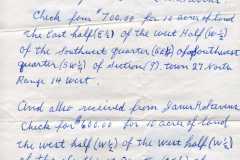 Check for $700.00 for 10 acres of land
The East half (E½) of the West Half (W½)
of the Southwest quarter (SW¼) of Southwest
quarter (S of Section (9). town 27 North
Range 14 West.
And also received from
Check for $600.00 for 10 acres of land
the West half (W½) of the West half (W½)